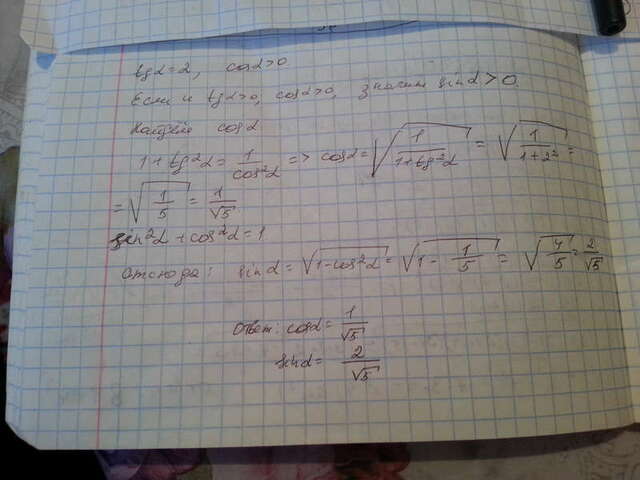 tgα=2, cosα>0
Если и tgα>0, cosα>0, значит sinα>0.
Найдём cosα
1+tg²α=1/cos²α => cosα=√(1/(1+tg²α)) = √(1/(1+2²)) =
=√(1/5) = 1/√5
sin²α+cos²α=1
Отсюда: sinα=√(1-cos²α)=√(1-1/5) = √(4/5)=2/√5
Ответ: cosα=1/√5
sinα=2/√5